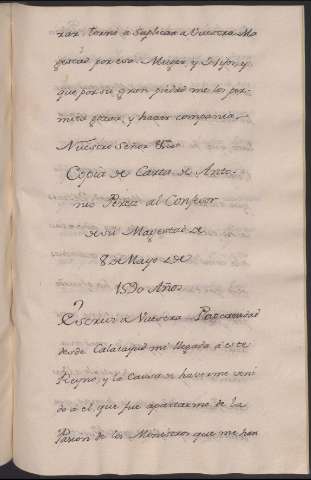 rar, torno à suplicar a Vuestra Ma
gestad por esa Muger, y Hijos, y
que por su gran piedad me los per-
mita gozar, y hacer compañia.
Nuestro Señor
Copia de Carta de Anto-
nio Perez al Confesor
de su Magestad de
8 de Mayo de
1590 Años
Escrivi à Vuestra Paternidad
desde Calatayud mi llegada à este
Reyno, y la Causa de haverme veni
do à el, que fue apartarme de la
Pasion de los Ministros que me han